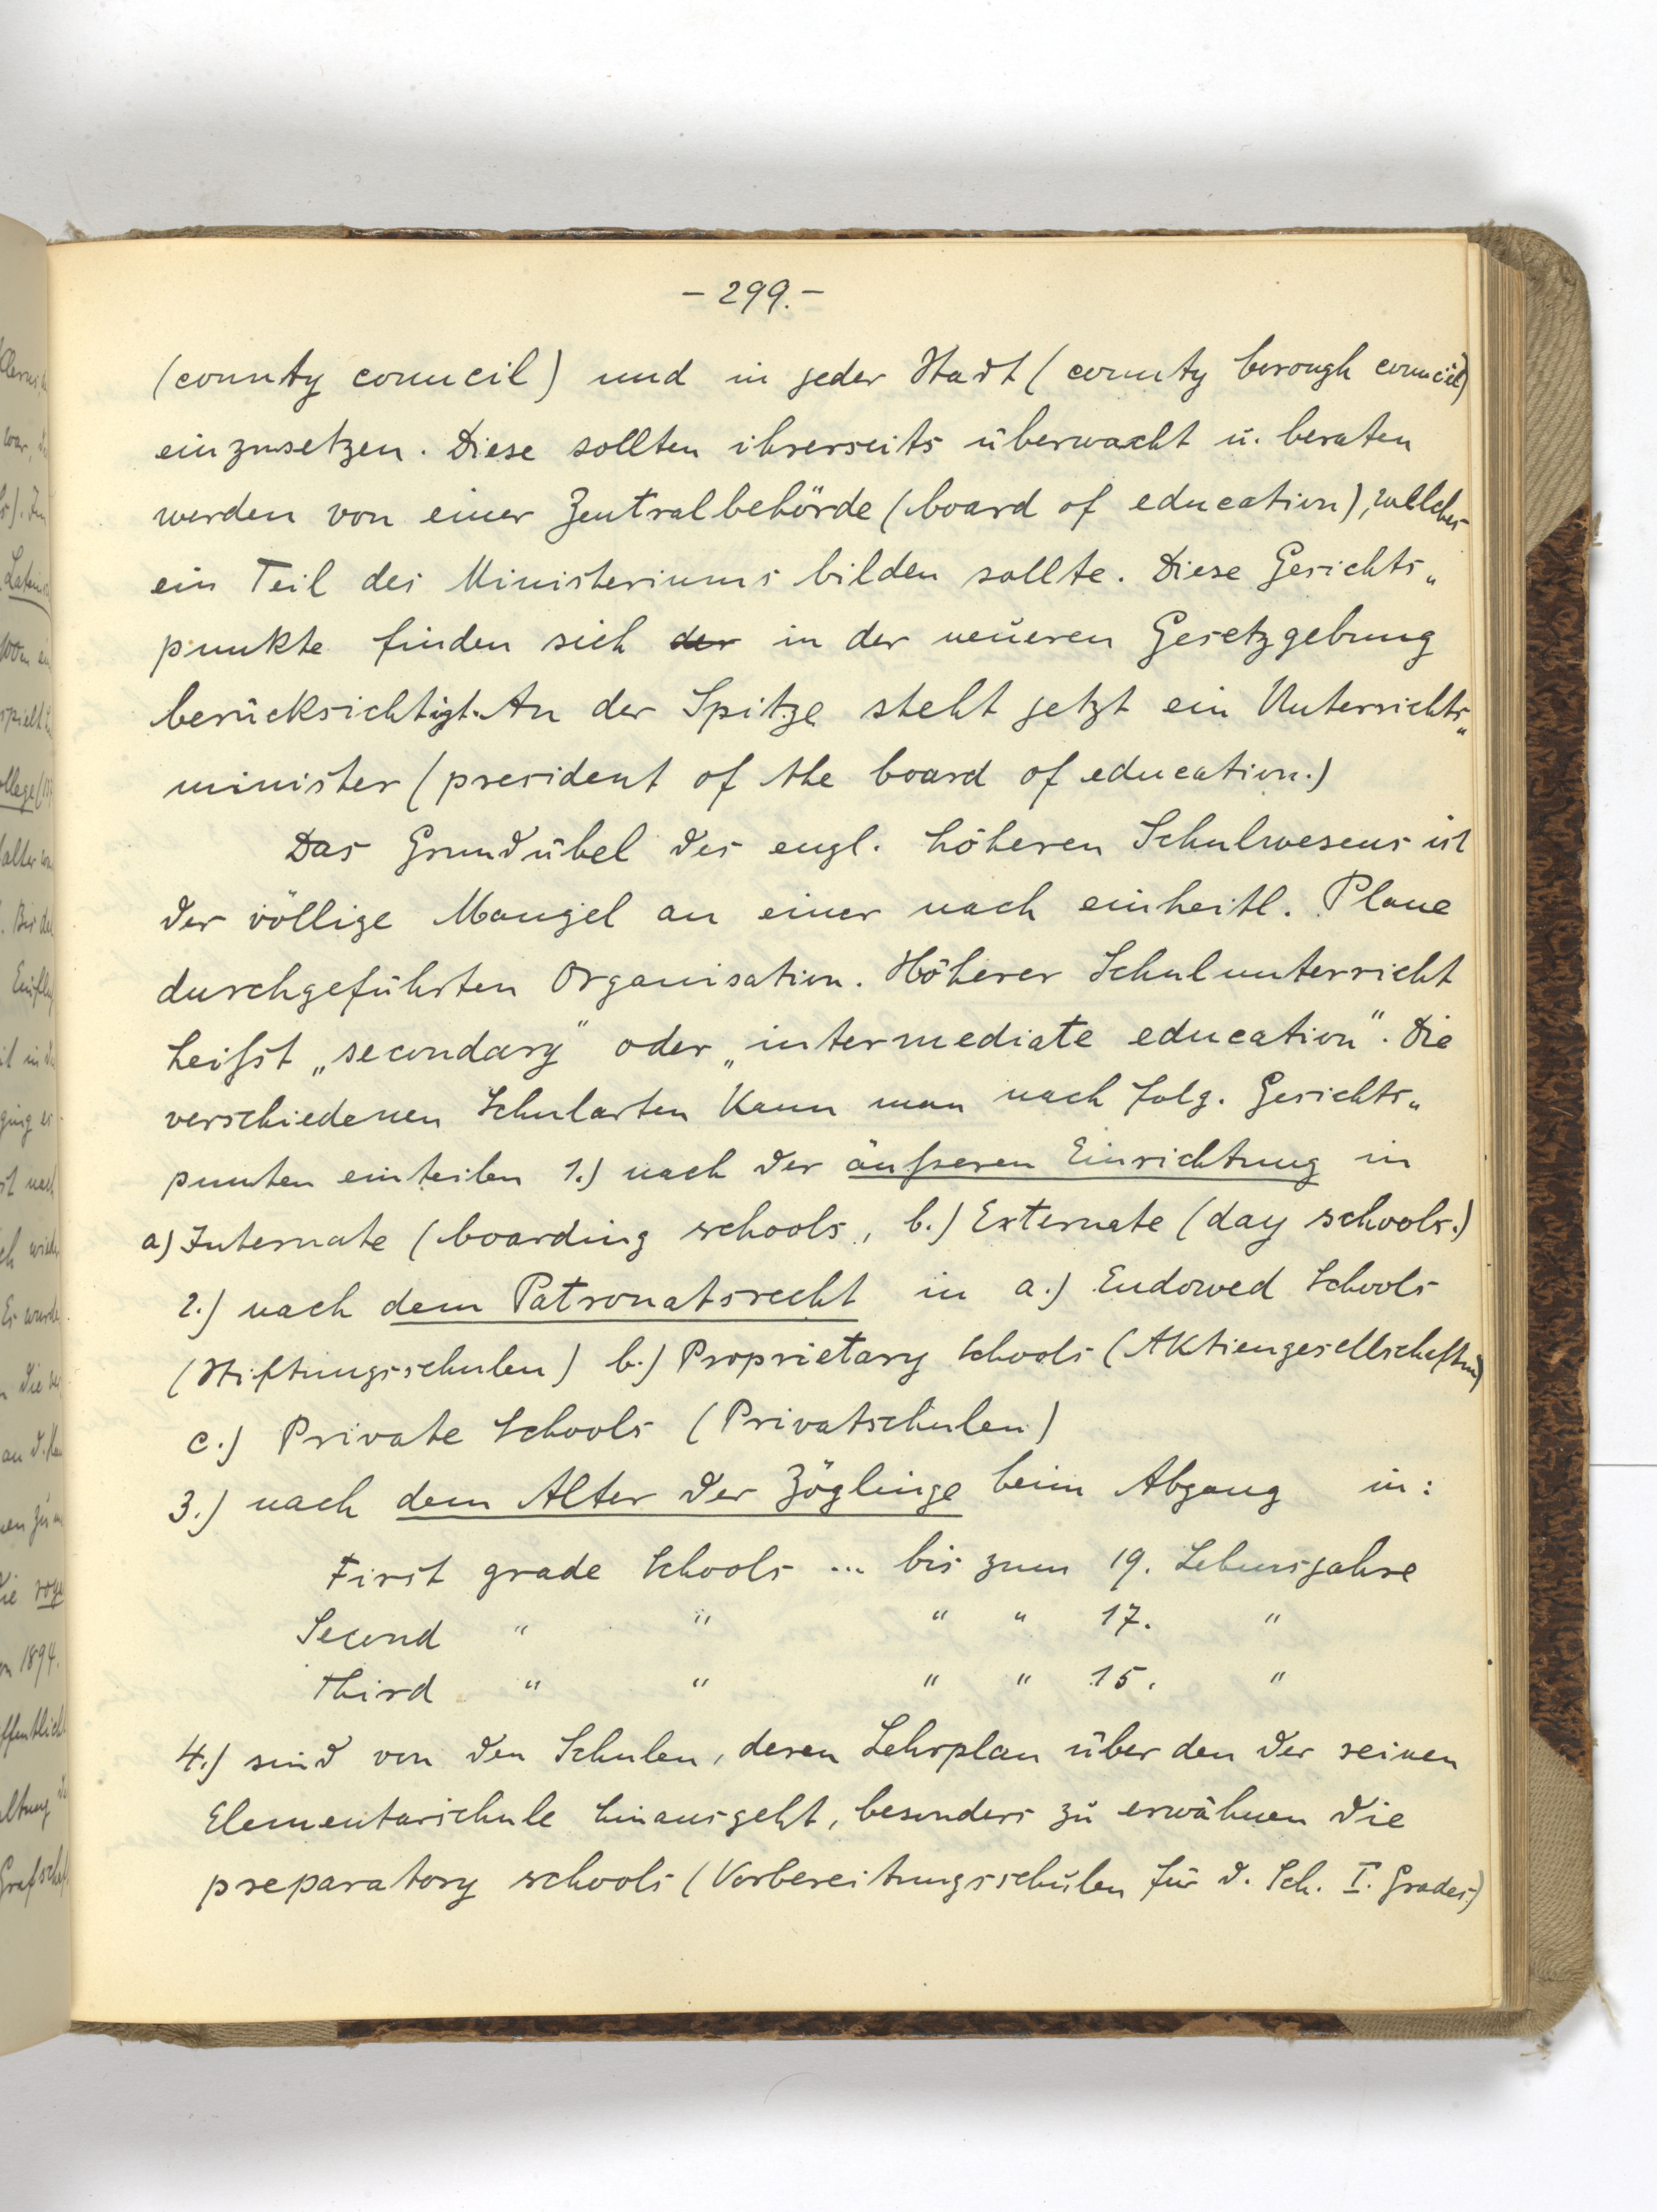 - 299. -
(county council) und in jeder Stadt (county borough council)
einzusetzen. Diese sollten ihrerseits überwacht u. beraten
werden von einer Zentralbehörde (board of education), welches
ein Teil des Ministeriums bilden sollte. Diese Gesichts„
punkte finden sich der in der neueren Gesetzgebung
berücksichtigt. An der Spitze steht jetzt ein Unterrichts„
minister (president of the board of education.)
Das Grundübel des engl. höheren Schulwesens ist
der völlige Mangel an einer nach einheitl. Plane
durchgeführten Organisation. Höherer Schulunterricht
heißt „secondary" oder „intermediate education". Die
verschiedenen Schularten kann man nach folg. Gesichts„
punten einteilen 1.) nach der äußeren Einrichtung in
a) Internate (boarding schools, b.) Externate (day schools.)
2.) nach dem Patronatsrecht in a.) Endowed Schools
(Stiftungsschulen) b.) Proprietary Schools (Aktiengesellschaften)
c.) Private Schools (Privatschulen)
3.) nach dem Alter der Zöglinge beim Abgang in:
First grade Schools ... bis zum 19. Lebensjahre
Second " " " " 17. "
Third " " " " 15. "
4.) sind von den Schulen, deren Lehrplan über den der reinen
Elementarschule hinausgeht, besonders zu erwähnen die
preparatory schools (Vorbereitungsschulen für d. Sch. I. Grades)